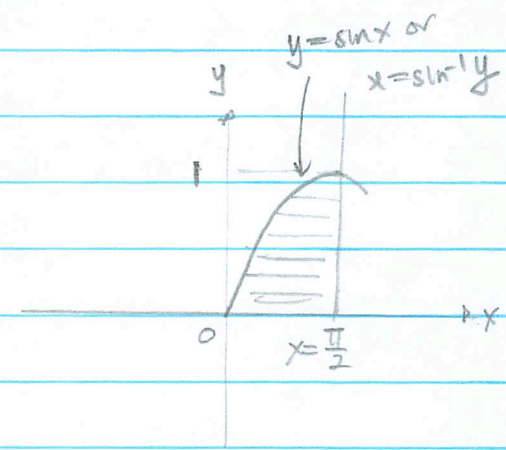 y = sin x or
x = sin⁻¹ y
y
1
0
x = π/2
x